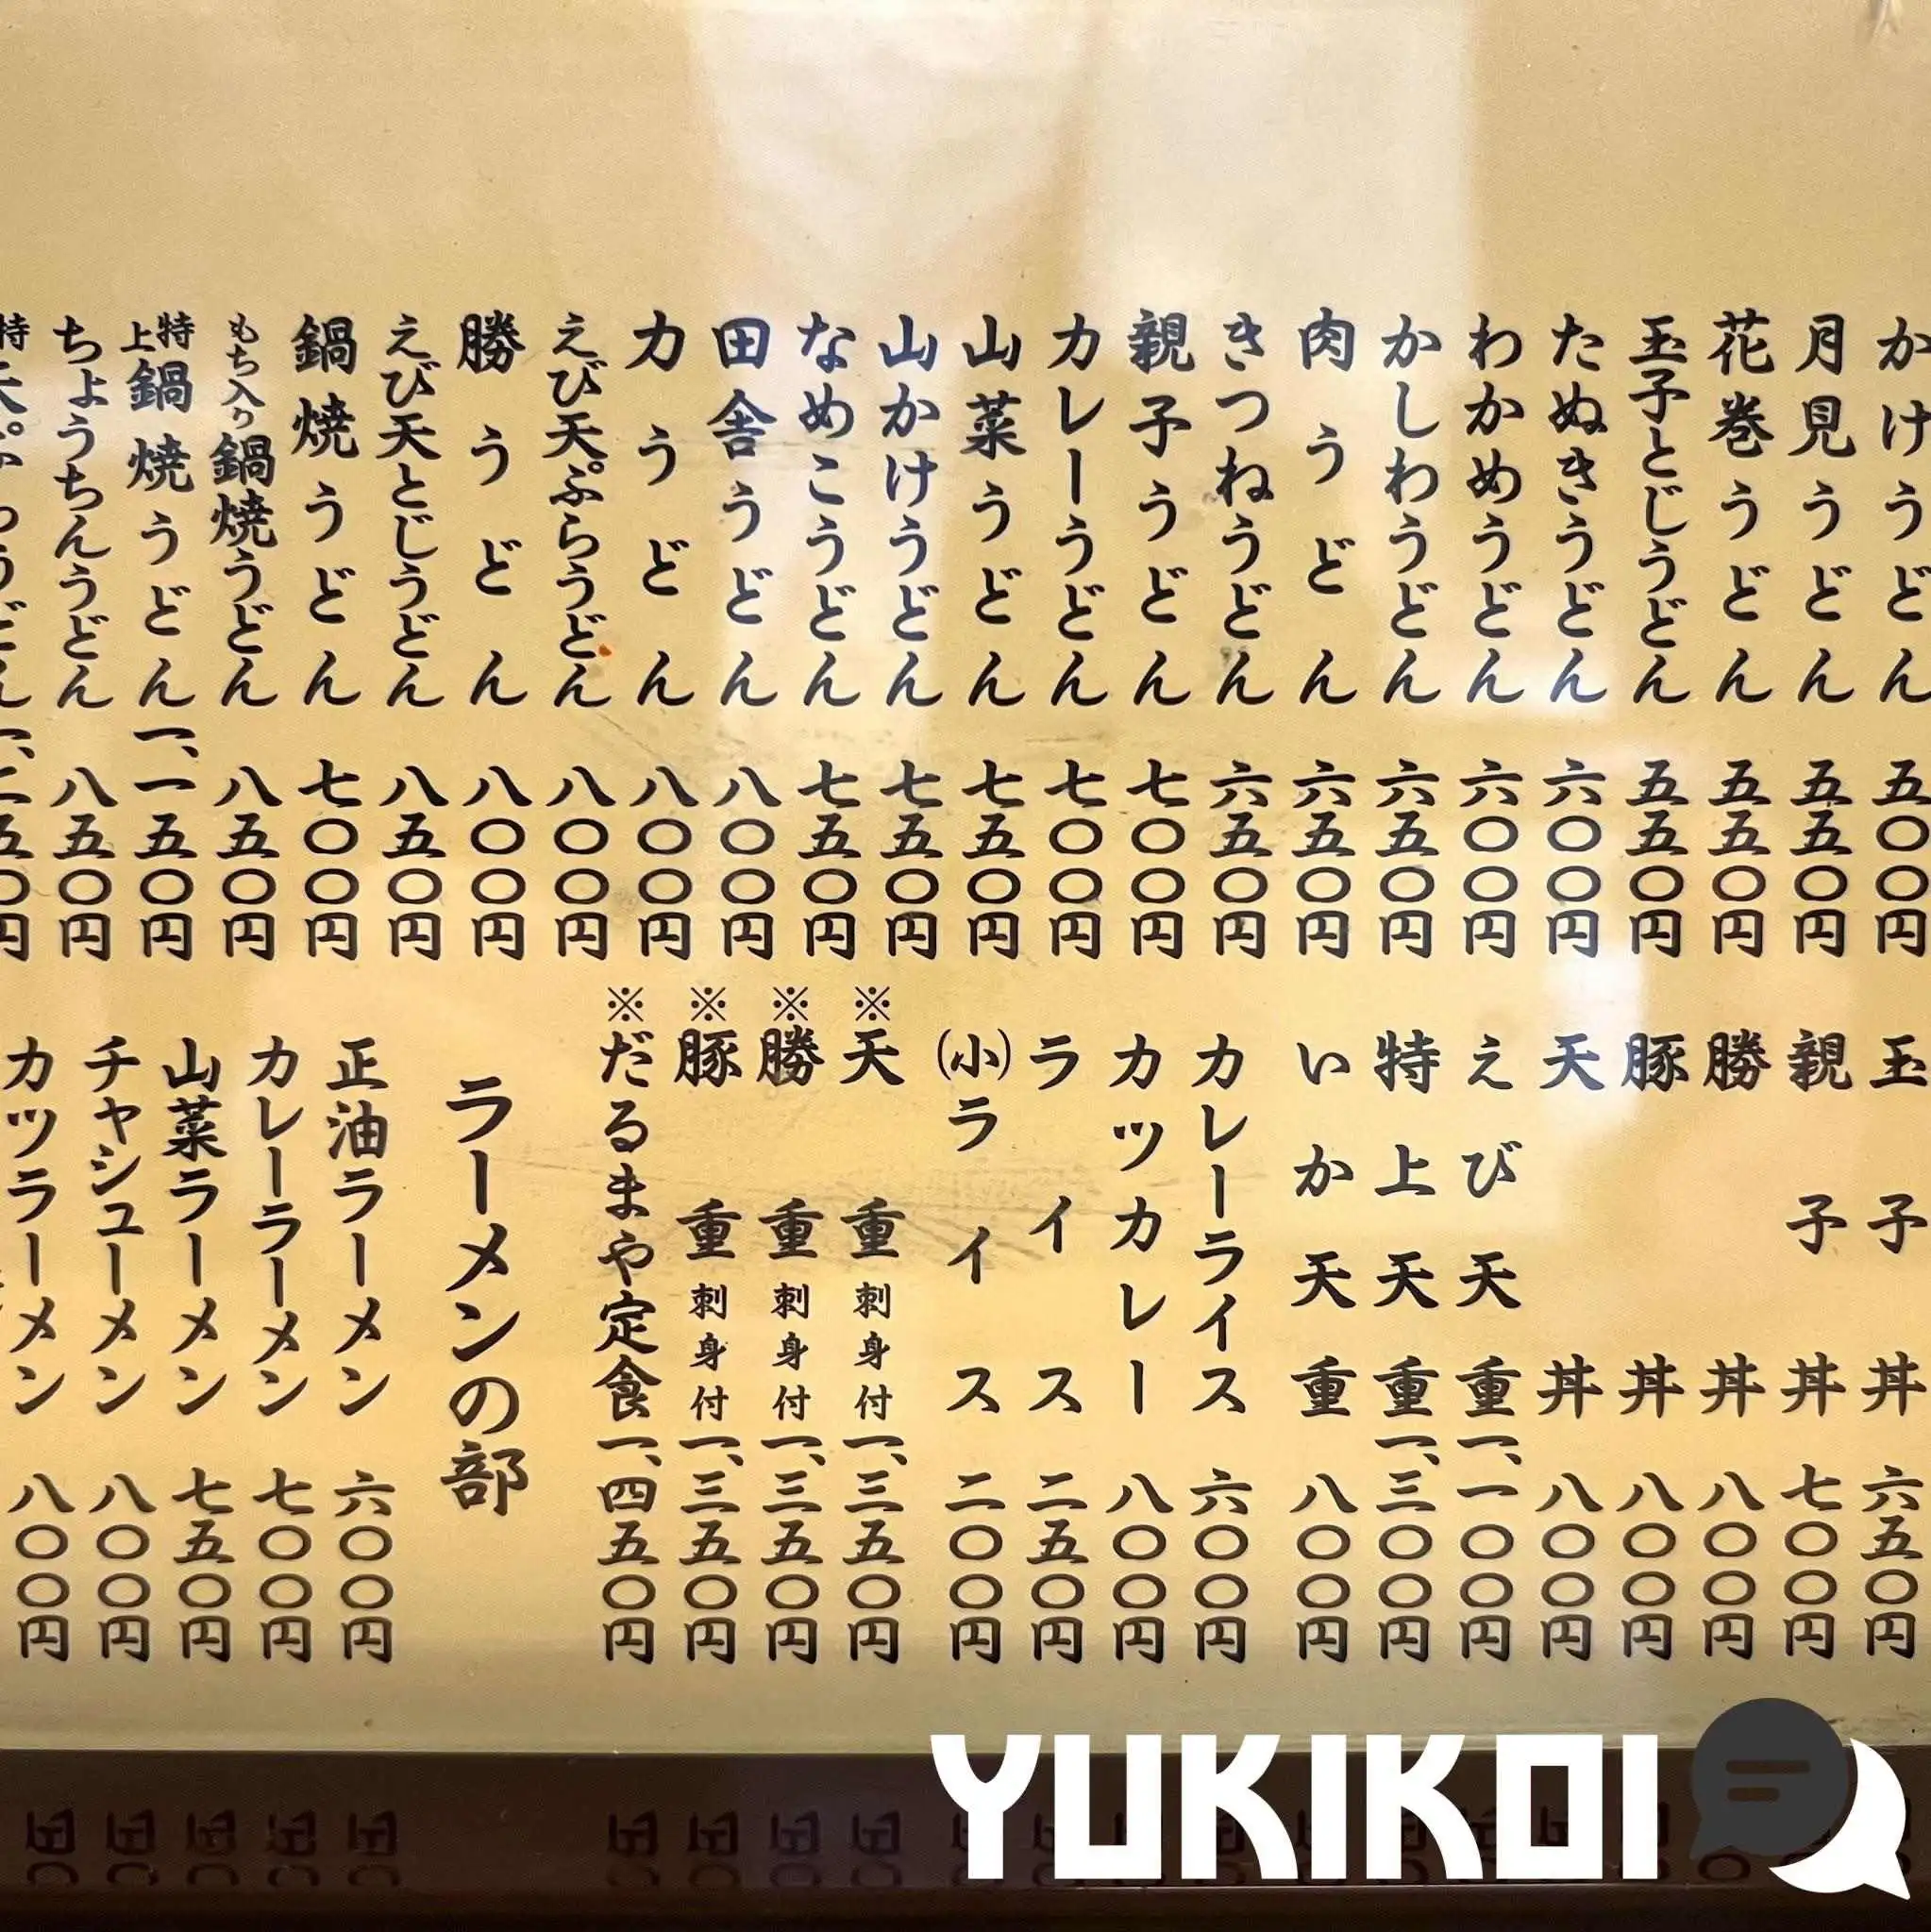 かけうどん 五〇〇円
月見うどん 五五〇円
花巻うどん 五五〇円
玉子とじうどん 五五〇円
たぬきうどん 六〇〇円
わかめうどん 六〇〇円
かしわうどん 六五〇円
肉うどん 六五〇円
きつねうどん 六五〇円
親子うどん 七〇〇円
カレーうどん 七〇〇円
山菜うどん 七五〇円
山かけうどん 七五〇円
なめこうどん 七五〇円
田舎うどん 八〇〇円
力うどん 八〇〇円
えび天ぷらうどん 八〇〇円
勝うどん 八〇〇円
えび天とじうどん 八五〇円
鍋焼うどん 七〇〇円
もち入り鍋焼うどん 八五〇円
特上鍋焼うどん 一、一五〇円
ちょうちんうどん 八五〇円
玉子丼 六五〇円
親子丼 七〇〇円
勝丼 八〇〇円
豚丼 八〇〇円
天丼 八〇〇円
えび天重 一、一〇〇円
特上天重 一、三〇〇円
いか天重 八〇〇円
カレーライス 六〇〇円
カツカレー 八〇〇円
ライス 二五〇円
(小)ライス 二〇〇円
※天重 刺身付 一、三五〇円
※勝重 刺身付 一、三五〇円
※豚重 刺身付 一、三五〇円
※だるまや定食 一、四五〇円
ラーメンの部
正油ラーメン 六〇〇円
カレーラーメン 七〇〇円
山菜ラーメン 七五〇円
チャシューメン 八〇〇円
カツラーメン 八〇〇円
YUKIKOI